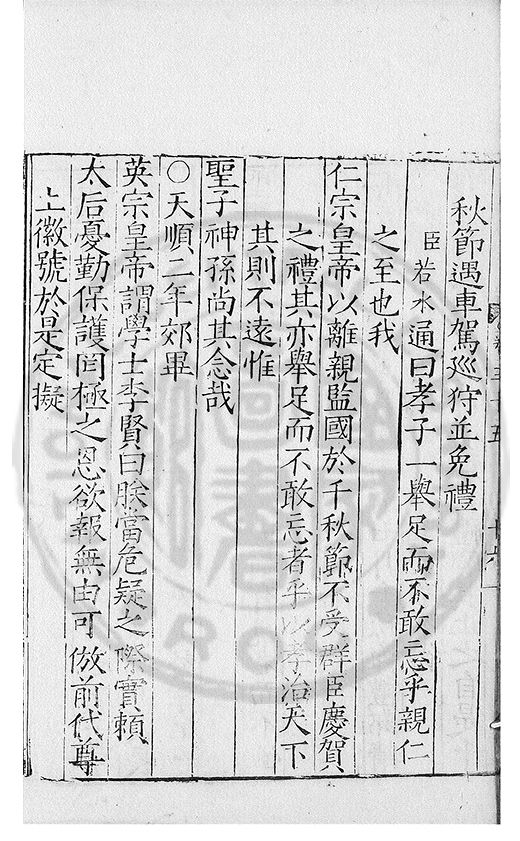 秋節遇車駕巡狩並免禮
臣若水通曰孝子一舉足而不敢忘乎親仁
之至也我
仁宗皇帝以離親監國於千秋節不受群臣慶賀
之禮其亦舉足而不敢忘者乎以孝治天下
其則不遠惟
聖子神孫尚其念哉
○天順二年郊畢
英宗皇帝謂學士李賢曰朕當危疑之際實賴
太后憂勤保護罔極之恩欲報無由可倣前代尊
上徽號於是定擬